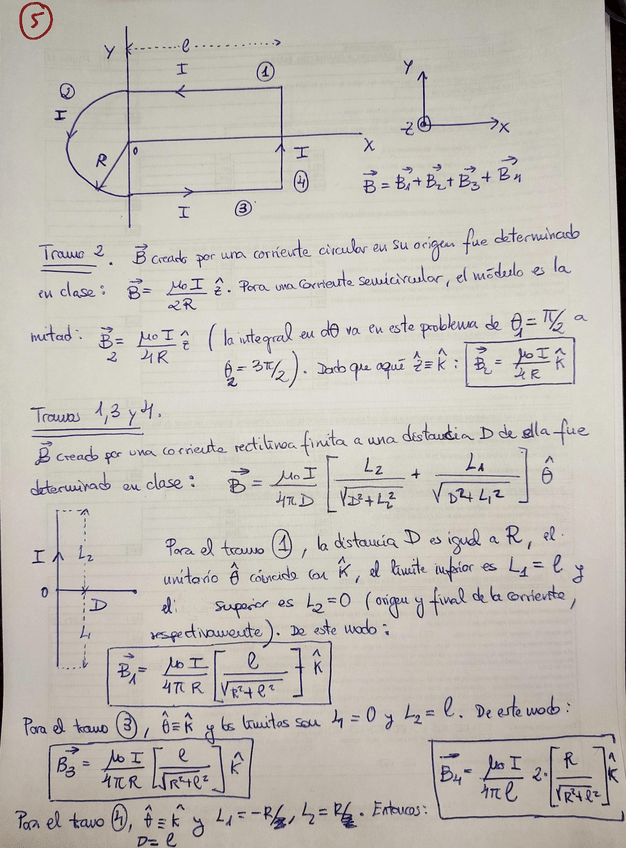 5
Y
l
I
1
2
I
R
0
X
I
4
I
3
Y
Z
X
B⃗ = B⃗1 + B⃗2 + B⃗3 + B⃗4
Tramo 2. B⃗ creado por una corriente circular en su origen fue determinado
en clase: B⃗ = μ0 I / 2R ẑ. Para una corriente semicircular, el módulo es la
mitad: B⃗2 = μ0 I / 4R ẑ (la integral en dθ va en este problema de θ1 = π/2 a
θ2 = 3π/2). Dado que aquí ẑ ≡ k̂ : B⃗2 = μ0 I / 4R k̂
Tramos 1, 3 y 4.
B⃗ creado por una corriente rectilínea finita a una distancia D de ella fue
determinado en clase: B⃗ = μ0 I / 4πD [ L2 / √(D²+L2²) + L1 / √(D²+L1²) ] θ̂
I
L2
0
D
L1
Para el tramo 1, la distancia D es igual a R, el
unitario θ̂ coincide con k̂, el límite inferior es L1 = l y
el superior es L2 = 0 (origen y final de la corriente,
respectivamente). De este modo:
B⃗1 = μ0 I / 4πR [ l / √(R²+l²) ] k̂
Para el tramo 3, θ̂ ≡ k̂ y los límites son L1 = 0 y L2 = l. De este modo:
B⃗3 = μ0 I / 4πR [ l / √(R²+l²) ] k̂
B⃗4 = μ0 I / 4πl 2·[ R / √(R²+l²) ] k̂
Para el tramo 4, θ̂ ≡ k̂ y L1 = -R, L2 = R. Entonces:
D = l